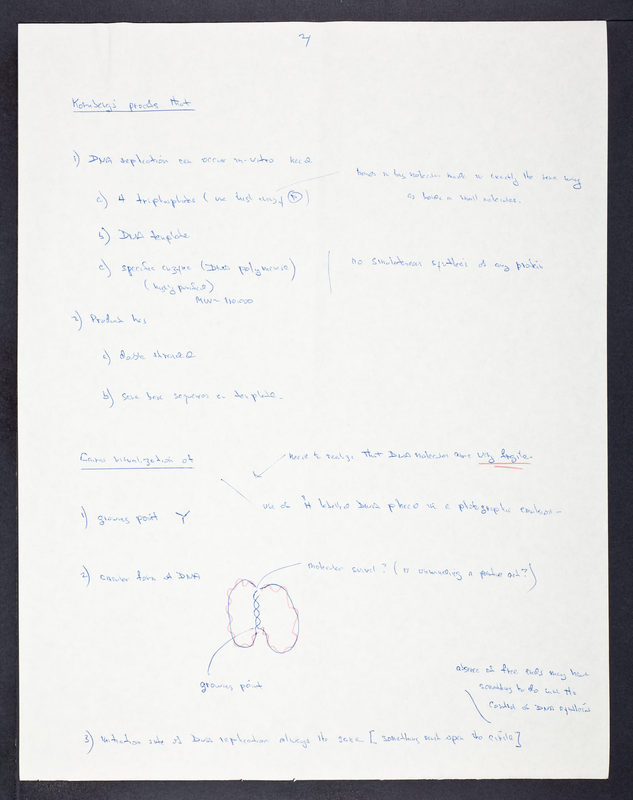 2/
Kornberg's process that
1) DNA replication can occur in-vitro need
a) 4 triphosphates (use high energy Ⓟ)
bonds in big molecules made in exactly the same way
as bonds in small molecules.
b) DNA template
c) specific enzyme (DNA polymerase)
(highly purified)
MW~ 110,000
no simultaneous synthesis of any protein
2) Product has
a) double stranded
b) same base sequences as template.
Cairns visualization of
have to realize that DNA molecules are very fragile.
use of H³ labelled DNA placed in a photographic emulsion-
1) growing point Y
2) circular form of DNA
molecular swivel? (is unwinding a passive act?)
growing point
absence of free ends may have
something to do with the
control of DNA synthesis
3) Initiation site of DNA replication always the same [something must open the circle]